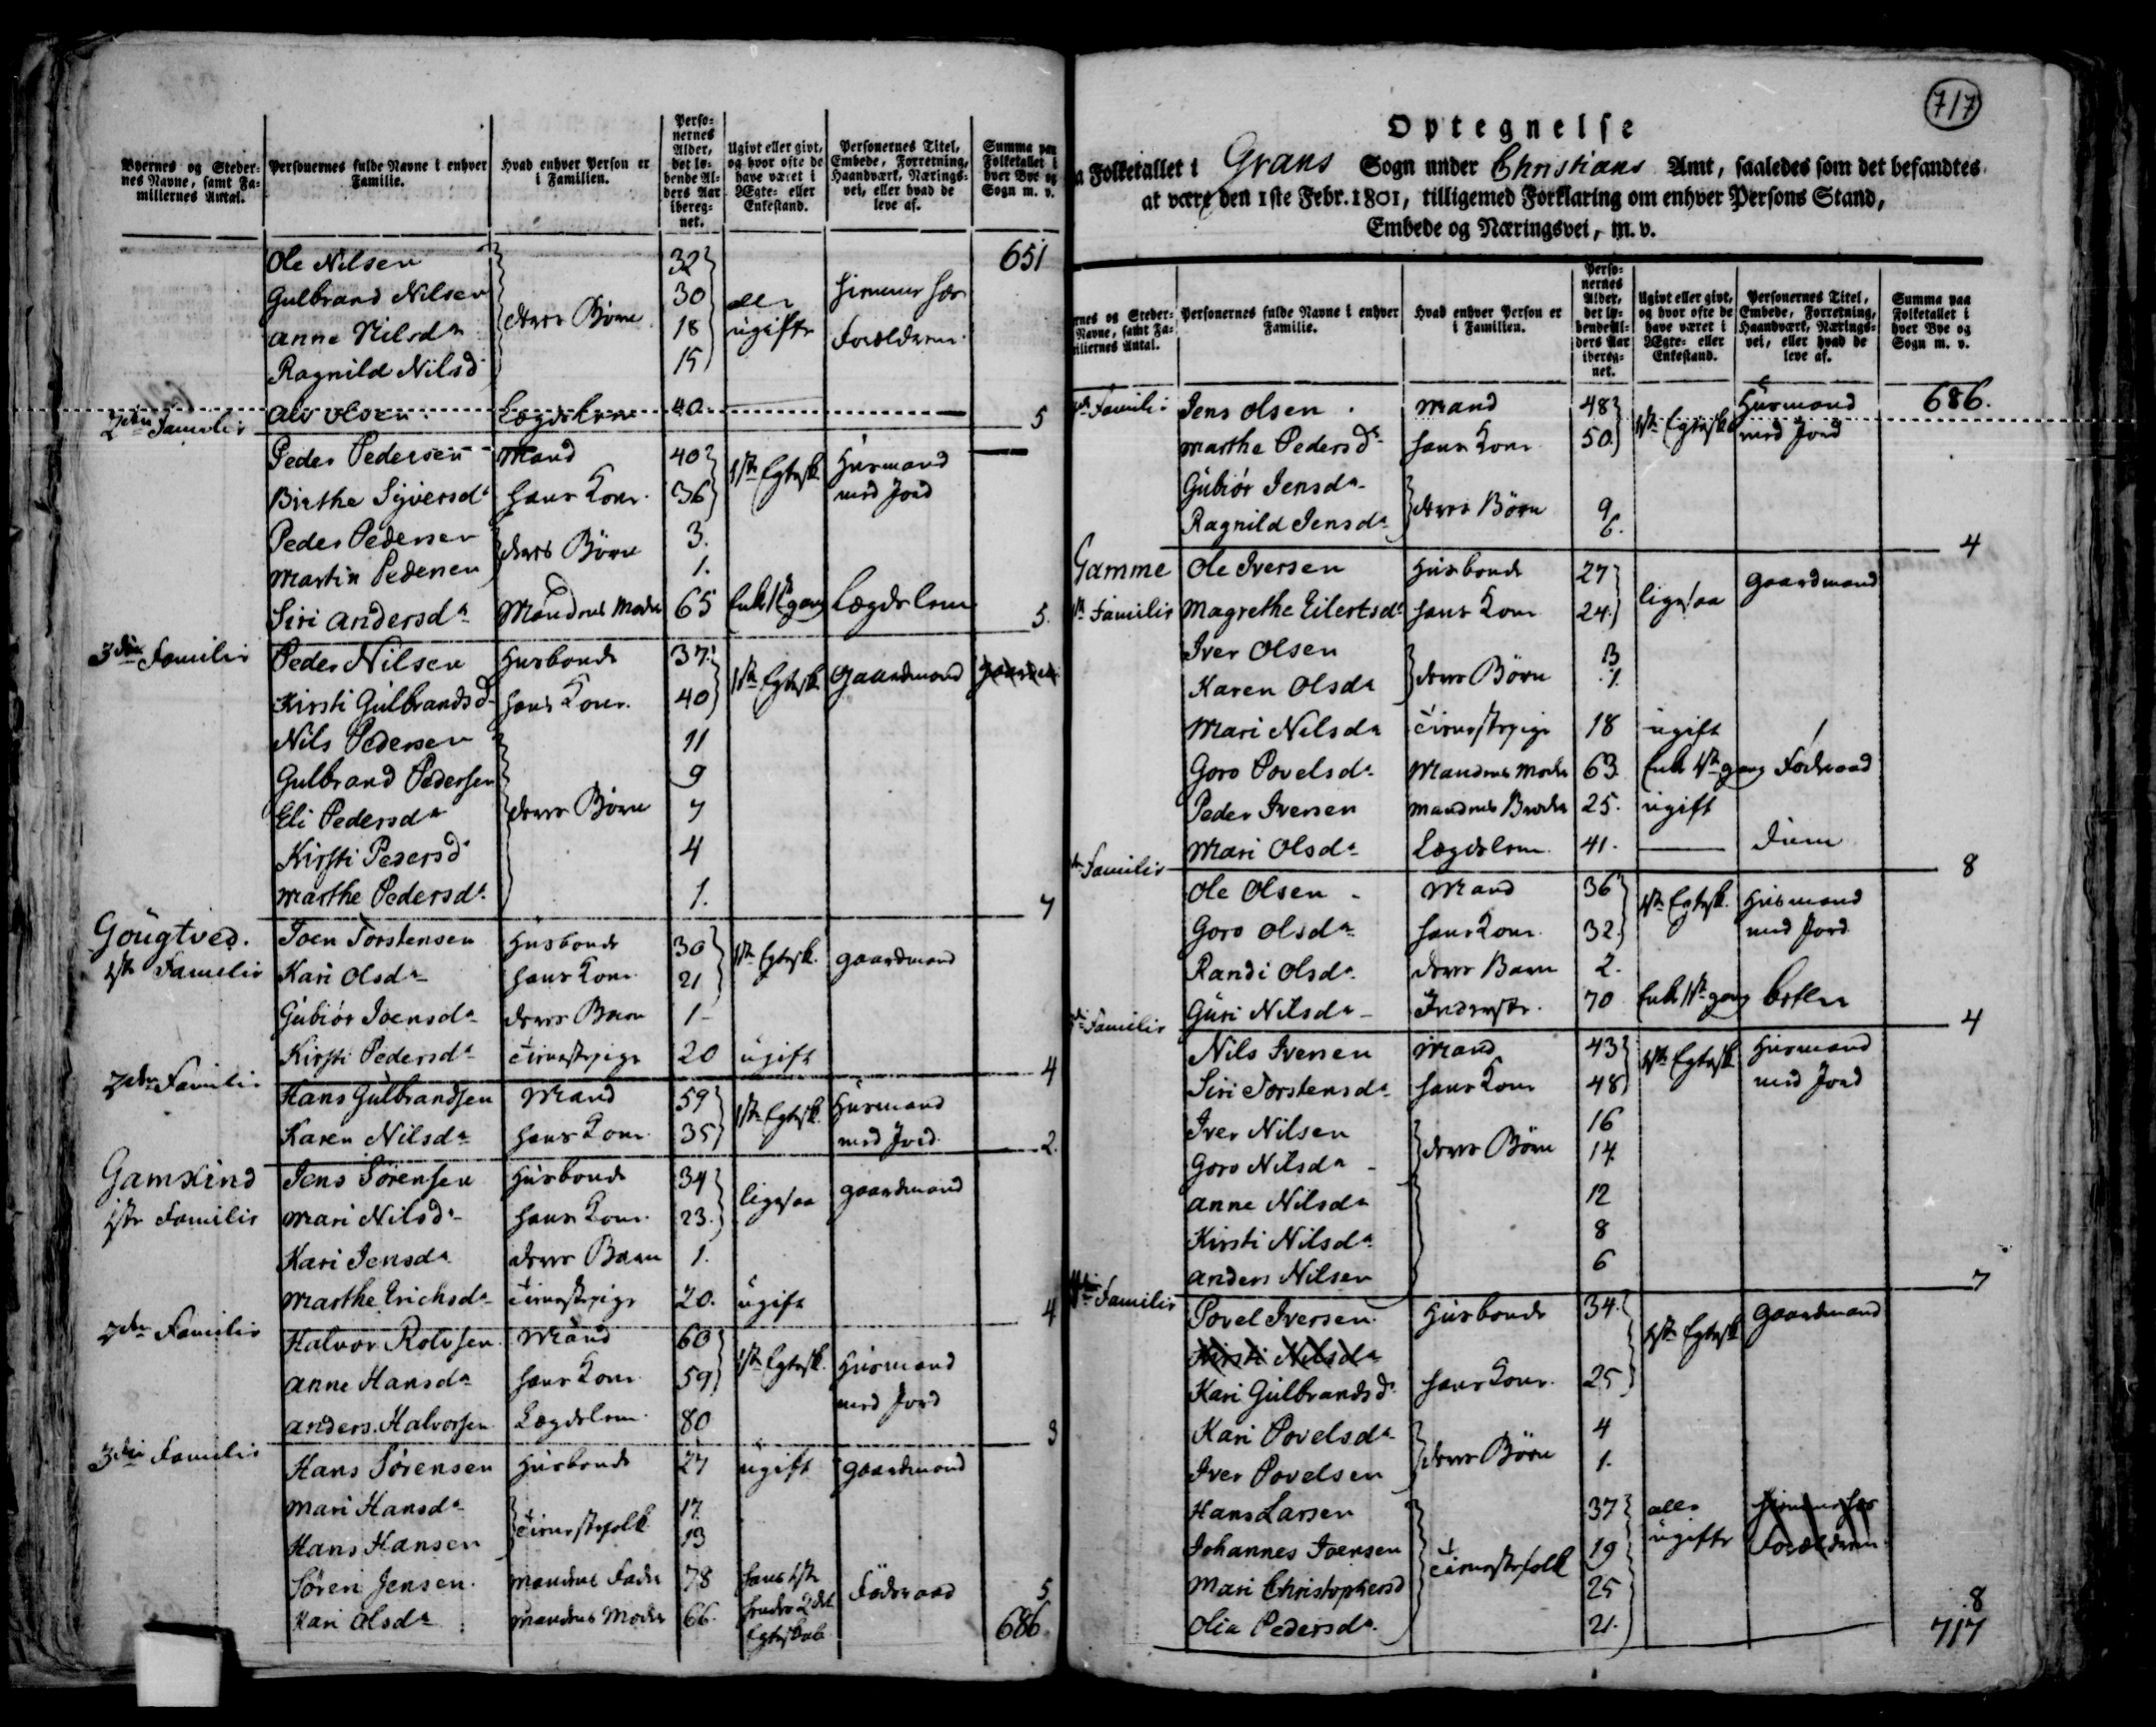 Byernes og Steder-nes Navne, samt Fa-miliernes Antal.
Personernes fulde Navne i enhver Familie.
Hvad enhver Person er i Familien.
Perso-nernes Alder, det lø-bende Al-ders Aar ibereg-net.
Ugivt eller givt, og hvor ofte de have været i Ægte- eller Enkestand.
Personernes Titel, Embede, Forretning, Haandværk, Nærings-vei, eller hvad de leve af.
Summa paa Folketallet i hver Bye og Sogn m. v.
Ole Nilsen 32 651
Gulbrand Nilsen deres Børn 30 alle hiemme hos
Anne Nilsda 18 ugifte Forældrene
Ragnild Nilsd 15
Alv Olsen Lægdslem 40 5
2den Familie
Peder Pedersen Mand 40 1ste Egtesk. Husmand
Birthe Syversd hans Kone 36 med Jord
Peder Pedersen deres Børn 3.
Martin Pedersen 1.
Siri Andersda Mandens Moder 65 Enke 1ste gang Lægdslem 5.
3die Familie Peder Nilsen Husbonde 37 1ste Egtesk. Gaardmand
Kirsti Gulbrandsd hans Kone 40
Nils Pedersen 11
Gulbrand Pedersen 9
Eli Pedersda deres Børn 7
Kirsti Pedersd 4
Marthe Pedersd. 1. 7
Gougtved. Joen Torstensen Husbonde 30 1ste Egtesk. Gaardmand
1ste Familie Kari Olsda hans Kone 21
Gubiør Joensda deres Barn 1
Kirsti Pedersda Tienestepige 20 ugift 4
2den Familie Hans Gulbrandsen Mand 59 1ste Egtesk. Husmand
Karen Nilsda hans Kone 35 med Jord 2.
Gamkind Jens Sørensen Husbonde 34 ligesaa Gaardmand
1ste Familie Mari Nilsd hans Kone 23.
Kari Jensda deres Barn 1.
Marthe Erichsda Tienestepige 20. ugift 4
2den Familie Halvor Rolvsen Mand 60 1ste Egtesk. Husmand
Anne Hansda hans Kone 59 med Jord
Anders Halvorsen Lægdslem 80 3
3die Familie Hans Sørensen Husbonde 27 ugift Gaardmand
Mari Hansda Tienestefolk 17
Hans Hansen 13
Søren Jensen. Mandens Fader 78 hans 1ste Føderaad 5
Kari Olsda Mandens Moder 66. hendes 2det Egteskab 686
717
Optegnelse
Folketallet i Grans Sogn under Christians Amt, saaledes som det befandtes
at være den 1ste Febr. 1801, tilligemed Forklaring om enhver Persons Stand,
Embede og Næringsvei, m. v.
rnes og Steder- Navne, samt Fa-iliernes Antal.
Personernes fulde Navne i enhver Familie.
Hvad enhver Person er i Familien.
Perso-nernes Alder, det lø-bende Al-ders Aar ibereg-net.
Ugivt eller givt, og hvor ofte de have været i Ægte- eller Enkestand.
Personernes Titel, Embede, Forretning, Haandværk, Nærings-vei, eller hvad de leve af.
Summa paa Folketallet i hver Bye og Sogn m. v.
Familie Jens Olsen Mand 48 1ste Egtesk. Husmand 686.
Marthe Pedersd hans Kone 50 med Jord
Gubiør Jensda deres Børn 9
Ragnild Jensda 6. 4
Gamme Ole Iversen Husbonde 27 ligesaa Gaardmand
Familie Magrethe Eilertsd hans Kone 24.
Iver Olsen deres Børn 3
Karen Olsda 1.
Mari Nilsda Tienestepige 18 ugift
Goro Povelsda Mandens Moder 63 Enke 1ste gang Føderaad
Peder Iversen Mandens Broder 25. ugift
Mari Olsda Lægdslem 41. 8
Familie Ole Olsen Mand 36 1ste Egtesk. Husmand
Goro Olsda hans Kone 32. med Jord
Randi Olsda deres Barn 2.
Guri Nilsda Inderste. 70 Enke 1ste gang betler 4
Familie
Nils Iversen Mand 43 1ste Egtesk. Husmand
Siri Torstensda hans Kone 48 med Jord
Iver Nilsen deres Børn 16
Goro Nilsda 14
Anne Nilsda 12
Kirsti Nilsda 8
Anders Nilsen 6 7
Familie Povel Iversen. Husbonde 34. 1ste Egtesk. Gaardmand
Kirsti Nilsda
Kari Gulbrandsd hans Kone 25
Kari Povelsda deres Børn 4
Iver Povelsen 1.
Hans Larsen 37 alle hiemme hos
Johannes Joensen Tienestefolk 19 ugifte Forældrene
Mari Christophersd 25
Olia Pedersda. 21. 8
717